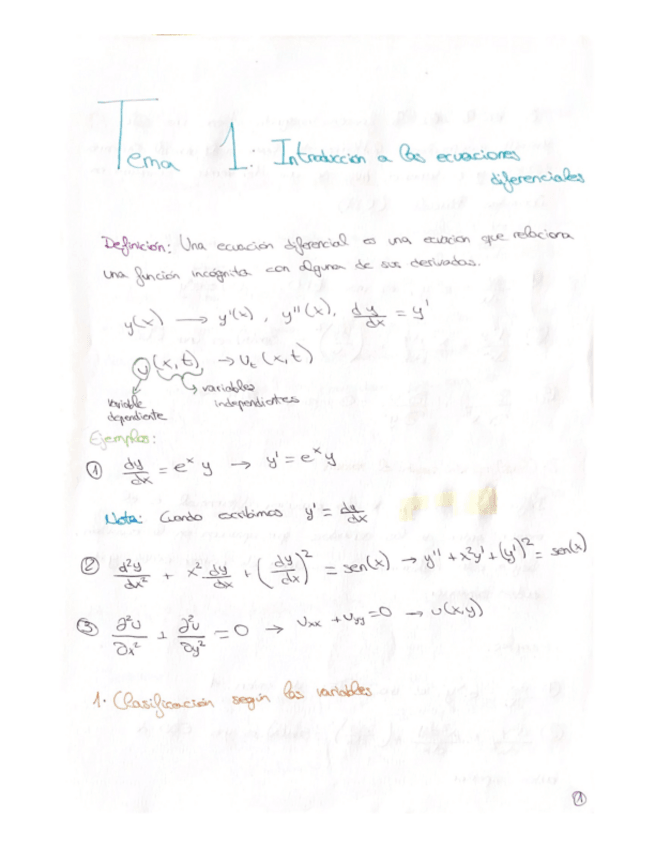 Tema 1: Introducción a las ecuaciones
diferenciales
Definición: Una ecuación diferencial es una ecuación que relaciona
una función incógnita con alguna de sus derivadas.
y(x) → y'(x), y''(x), dy/dx = y'
u(x,t) → u_t(x,t)
variable dependiente
variables independientes
Ejemplos:
① dy/dx = e^x y → y' = e^x y
Nota: Cuando escribimos y' = dy/dx
② d²y/dx² + x² dy/dx + (dy/dx)² = sen(x) → y'' + x²y' + (y')² = sen(x)
③ ∂²u/∂x² + ∂²u/∂y² = 0 → u_xx + u_yy = 0 → u(x,y)
1. Clasificación según las variables
①